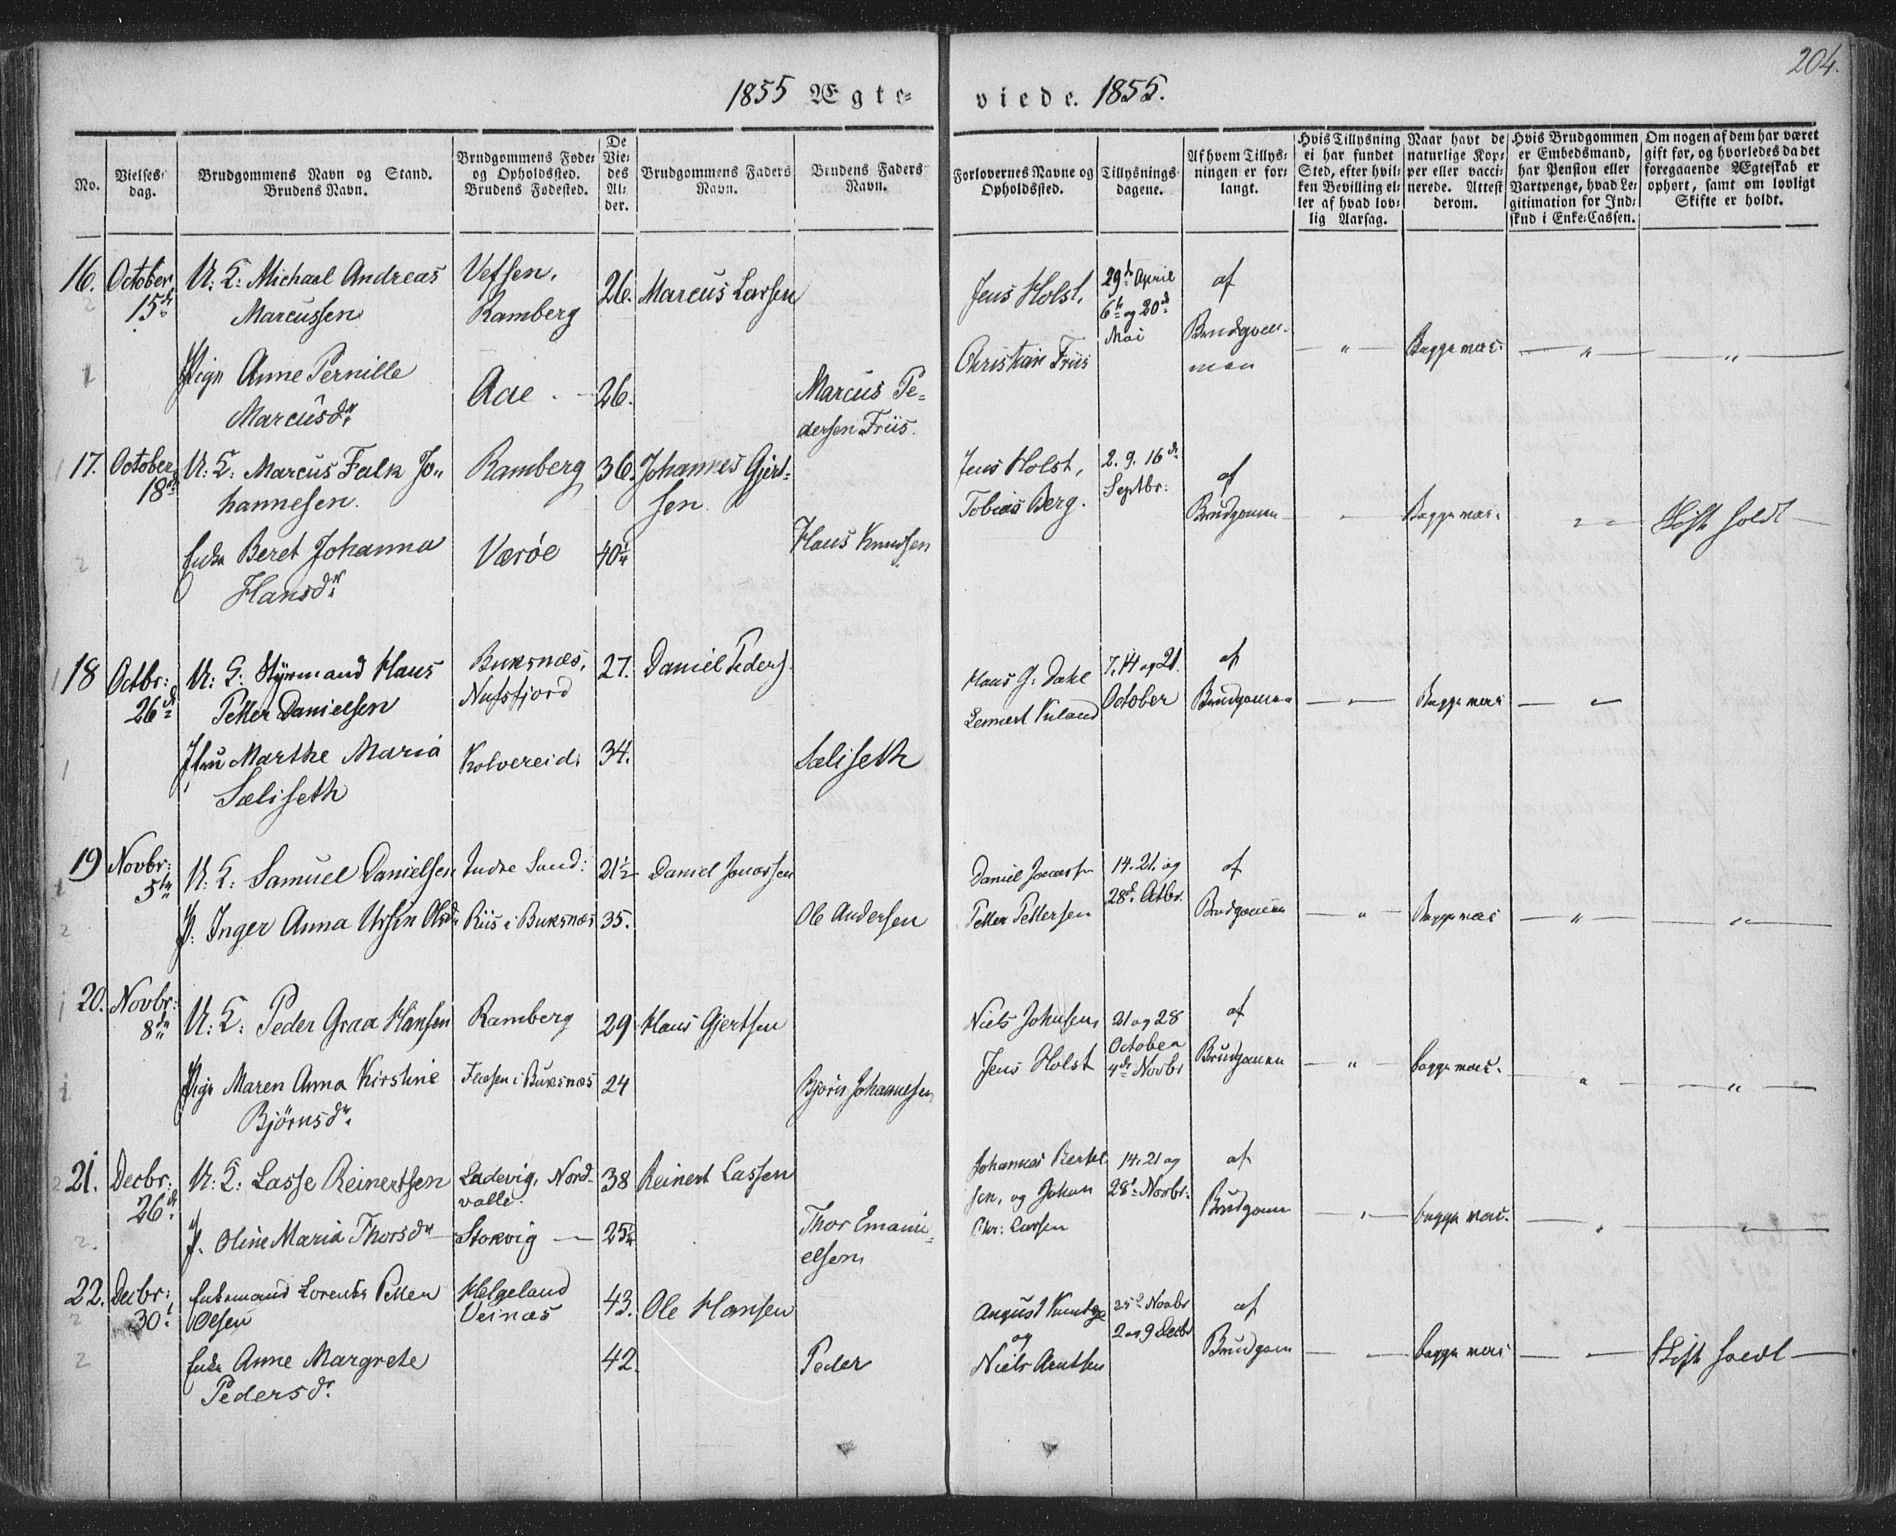 204.
1855 Ægte- viede. 1855.
No.
Vielses-
dag.
Brudgommens Navn og Stand.
Brudens Navn.
Brudgommens Føde-
og Opholdsted.
Brudens Fødested.
De
Vie-
des
Al-
der.
Brudgommens Faders
Navn.
Brudens Faders
Navn.
Forlovernes Navne og
Opholdsted.
Tillysnings-
dagene.
Af hvem Tillys-
ningen er for-
langt.
Hvis Tillysning
ei har fundet
Sted, efter hvil-
ken Bevilling el-
ler af hvad lov-
lig Aarsag.
Naar havt de
naturlige Kop-
per eller vacci-
nerede. Attest
derom.
Hvis Brudgommen
er Embedsmand,
har Pension eller
Vartpenge, hvad Le-
gitimation for Ind-
skud i Enke-Cassen.
Om nogen af dem har været
gift før, og hvorledes da det
foregaaende Ægteskab er
ophørt, samt om lovligt
Skifte er holdt.
16. October
15d
U: K: Michael Andreas
Marcussen
Vefsen,
Ramberg
26. Marcus Larsen
Jens Holst,
29d April
6te og 20d
Mai
af
Brudgom-
men
Christian Friis
Begge vac.
Pige Anne Pernille
Marcusdr
Aae
26.
Marcus Pe-
dersen Friis.
17. October
18d
U: K: Marcus Falk Jo-
hannesen.
Ramberg
36. Johannes Gjert-
sen
Jens Holst,
Tobias Berg.
2. 9. 16d
Septbr:
af
Brudgommen
Begge vac.
Skifte holdt
Enke Beret Johanna
Hansdr
Værøe
40¼
Hans Knudsen
18 Octbr:
26d
U: K: Styrmand Hans
Petter Danielsen
Buksnæs,
Nufsfjord
27. Daniel Peders.
Hans G. Dahl
Lennert Kuland
7, 14 og 21.
October
af
Brudgommen
Begge vac
Jfru Marthe Maria
Sæliseth
Kolvereid.
34.
Sæliseth
19 Novbr:
5te
U: K: Samuel Danielsen
Indre Sand:
21½ Daniel Jonassen
Daniel Jonassen
14. 21. og
28d Octbr.
af
P: Inger Anna Ursin Olsdr
Riis i Buksnæs
35.
Ole Andersen
Petter Pettersen
Brudgommen
Begge vac
20. Novbr:
8de
U: K: Peder Graa Hansen
Ramberg
29 Hans Gjertsen
Niels Johnsen,
Jens Holst
21 og 28
October
4de Novbr
af
Brudgommen
begge vac.
Pige Maren Anna Kirstine
Bjørnsdr
i Buksnæs
24
Bjørn Johannesen
21. Decbr:
26d
U: K: Lasse Reinertsen
Ladevig, Nord-
volle.
38 Reinert Lassen
Johannes Bertel-
sen, og Johan
Chr: Larsen
14. 21 og
28d Novbr:
af
Brudgom
begge vac.
P. Oline Maria Thorsdr
Stokvig
25¼
Thor Emanu-
elsen
22. Decbr:
30t
Enkemand Lorents Petter
Olsen
Helgeland
Veinæs
43. Ole Hansen
August
og
Niels Arntsen
25d Novbr
2 og 9 Decbr
af
Brudgom
begge vac
Skifte holdt
Enke Anne Margrete
Pedersdr
42.
Peder